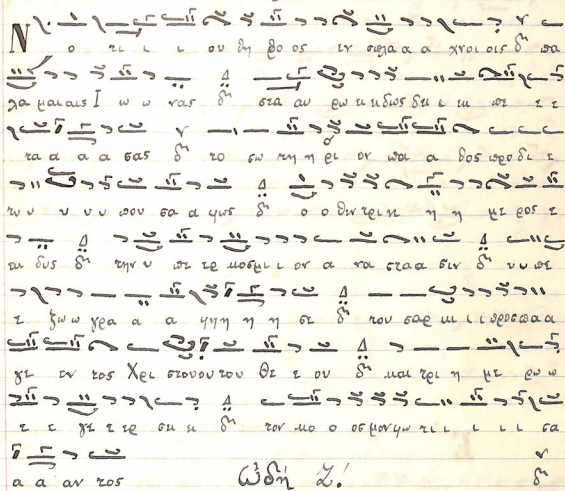 Ν ο τι ι ι ου θη ρο ος εν σπλα α α χνοι οις δι πα
λα μαι αις Ι ω ω νας δι σταυ αυ ρω κι κι δως δι κι ι κι πε τ ε
τα α α α σας δι το σω τη η ρι ον πα α θος προ δι ε
τυ υ υ υ υ που σα α φως δι ο ο θεν τρι η η η με ρος ε
εκ δυς δι την υ πε ερ κοσμι ι ον α να στα α σιν δι υ υ πε
ε ζω ω γρα α α φη η η η σε δι του σαρ κι ι ι προσπα α
γε εν τος Χρι στου ου του Θε ε ου δι και τρι η με ρω ω
ε ε γε ε ερ σει ει δι τον κο ο οσμον φω τι ι ι ι ι σα
α α αν τος Ωδή Ζ! δι